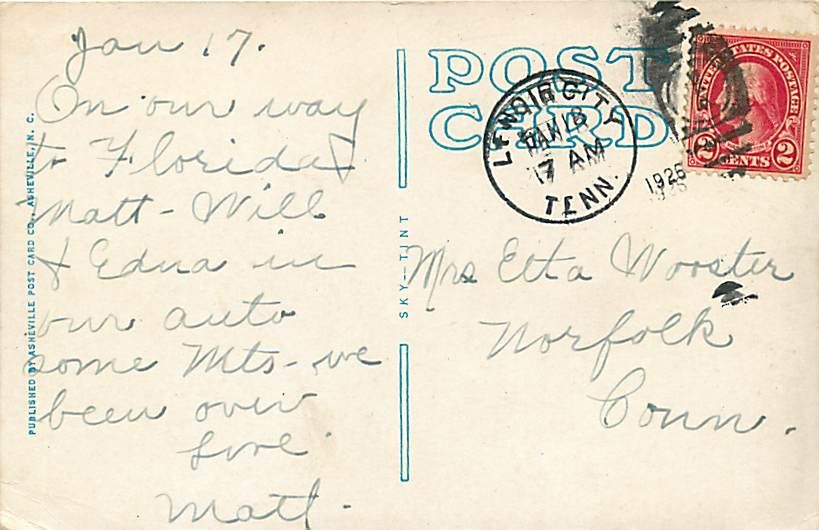 Jan 17.
On our way
to Florida
Matt - Will
& Edna in
our auto
some Mts - we
been over
Love
Matt.
PUBLISHED BY ASHEVILLE POST CARD CO., ASHEVILLE, N. C.
SKY-TINT
POST
CARD
LENOIR CITY
7 AM
TENN.
1926
UNITED STATES POSTAGE
2 CENTS 2
Mrs Etta Wooster
Norfolk
Conn.